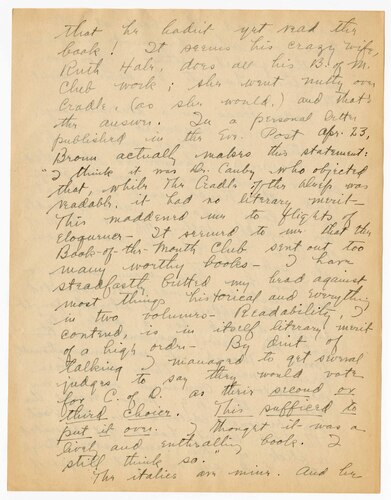 that he hadn't yet read the
book! It seems his crazy wife,
Ruth Hale, does all his B. of M.
Club work; she went nutty over
Cradle, (as she would.) and that's
the answer. In a personal letter
published in the Eve. Post Apr. 23,
Broun actually makes this statement:
"I think it was Dr. Canby who objected
that, while The Cradle of the Deep was
readable, it had no literary merit—
This maddened me to flights of
eloquence— It seemed to me that the
Book-of-the-Month Club sent out too
many worthy books— I have
steadfastly butted my head against
most things historical and everything
in two volumes— Readability, I
contend, is in itself literary merit
of a high order— By dint of
talking I managed to get several
judges to say they would vote
for C. of D. as their second or
third choice. This sufficed to
put it over. I thought it was a
lively and enthralling book. I
still think so."
The italics are mine. And he